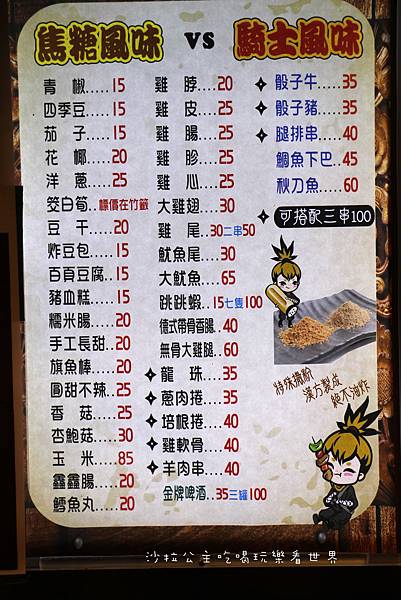 焦糖風味 vs 騎士風味
青椒.....15
四季豆.....15
茄子.....15
花椰.....20
洋蔥.....25
筊白筍..標價在竹籤
豆干.....20
炸豆包.....15
百頁豆腐..15
豬血糕....15
糯米腸....20
手工長甜..20
旗魚棒....20
圓甜不辣..25
香菇.....25
杏鮑菇....30
玉米.....85
鑫鑫腸....20
鱈魚丸....20
雞脖....20
雞皮....25
雞腸....25
雞胗....25
雞心....25
大雞翅...30
雞尾..30二串50
魷魚尾...30
大魷魚...65
跳跳蝦..15七隻100
德式帶骨香腸..40
無骨大雞腿..60
龍珠...35
蔥肉捲...35
培根捲...40
雞軟骨...40
羊肉串...40
金牌啤酒..35三罐100
骰子牛...35
骰子豬...35
腿排串...40
鯛魚下巴..45
秋刀魚...60
可搭配三串100
特殊撒粉
漢方製成
絕不油炸
沙拉公主吃喝玩樂看世界